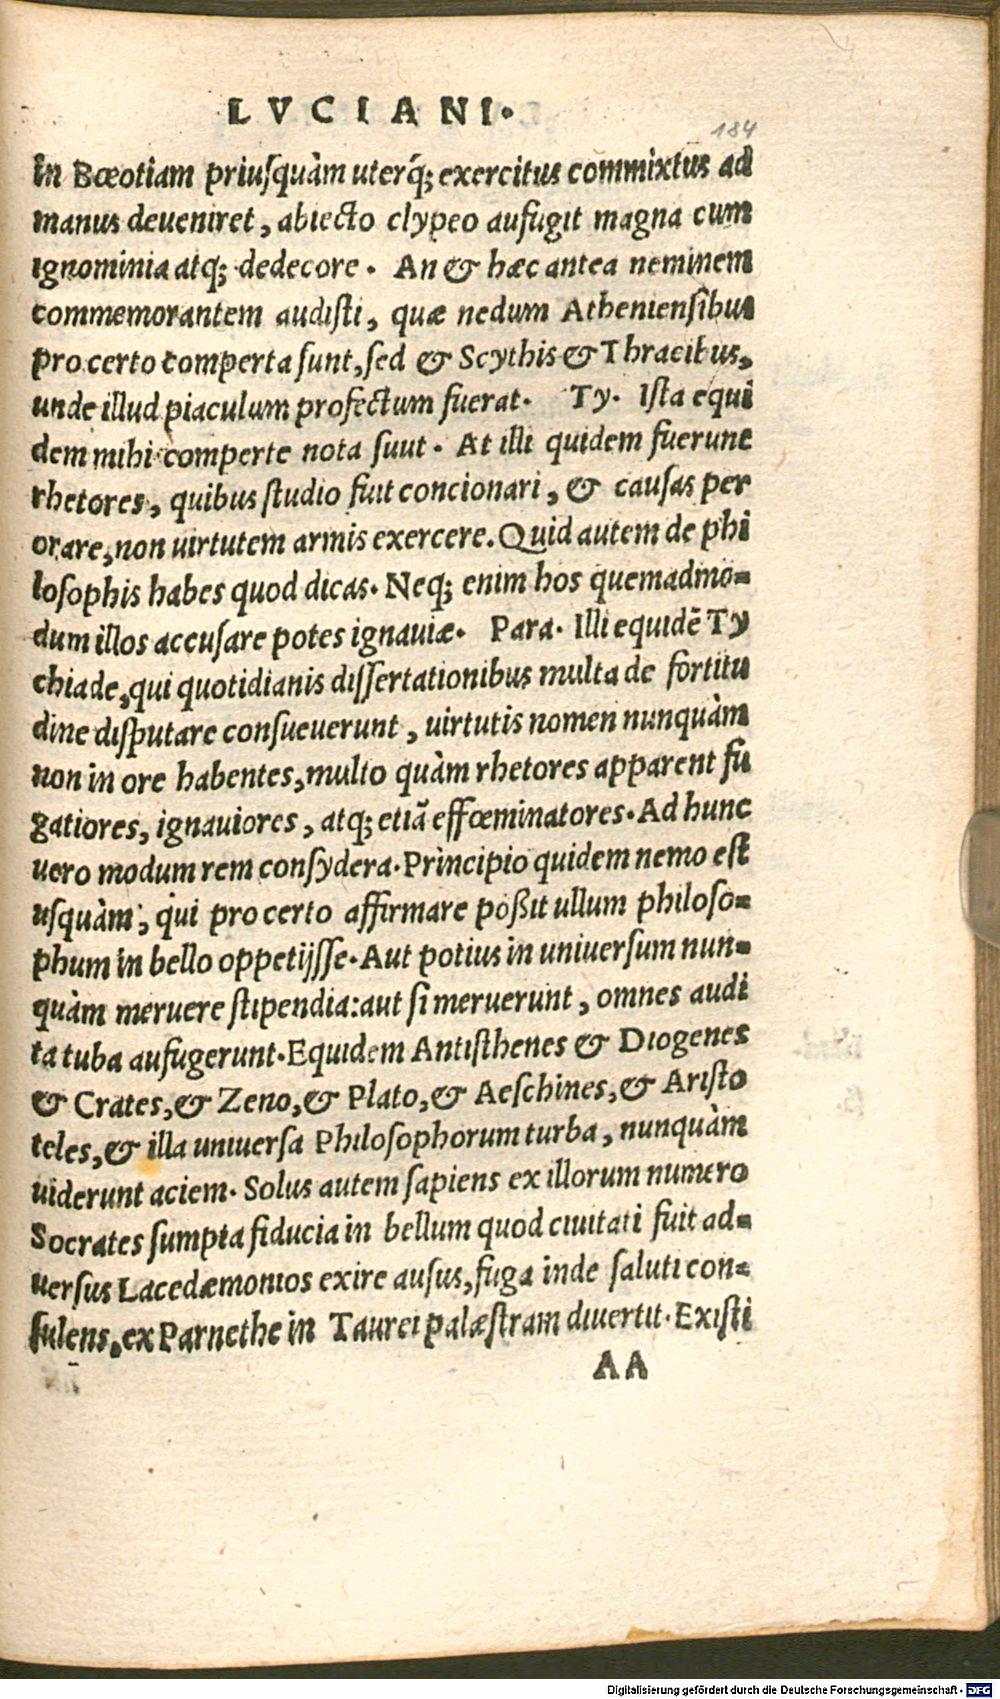 LVCIANI.
184
in Bœotiam priusquàm uterq́; exercitus commixtus ad
manus deueniret, abiecto clypeo aufugit magna cum
ignominia atq; dedecore. An & hæc antea neminem
commemorantem audisti, quæ nedum Atheniensibus
pro certo comperta sunt, sed & Scythis & Thracibus,
unde illud piaculum profectum fuerat. Ty. Ista equi
dem mihi comperte nota suut. At illi quidem fuerunt
rhetores, quibus studio fuit concionari, & causas per
orare, non uirtutem armis exercere. Quid autem de phi
losophis habes quod dicas. Neq; enim hos quemadmo-
dum illos accusare potes ignauiæ. Para. Illi equidẽ Ty
chiade, qui quotidianis dissertationibus multa de fortitu
dine disputare consueuerunt, uirtutis nomen nunquàm
non in ore habentes, multo quàm rhetores apparent fu
gatiores, ignauiores, atq; etiã effœminatores. Ad hunc
uero modum rem consydera. Principio quidem nemo est
usquàm, qui pro certo affirmare poßit ullum philoso-
phum in bello oppetijsse. Aut potius in uniuersum nun-
quàm meruere stipendia: aut si meruerunt, omnes audi
ta tuba aufugerunt. Equidem Antisthenes & Diogenes
& Crates, & Zeno, & Plato, & Aeschines, & Aristo
teles, & illa uniuersa Philosophorum turba, nunquàm
uiderunt aciem. Solus autem sapiens ex illorum numero
Socrates sumpta fiducia in bellum quod ciuitati fuit ad-
uersus Lacedæmonios exire ausus, fuga inde saluti con-
sulens, ex Parnethe in Taurei palæstram diuertit. Existi
AA
Digitalisierung gefördert durch die Deutsche Forschungsgemeinschaft - DFG